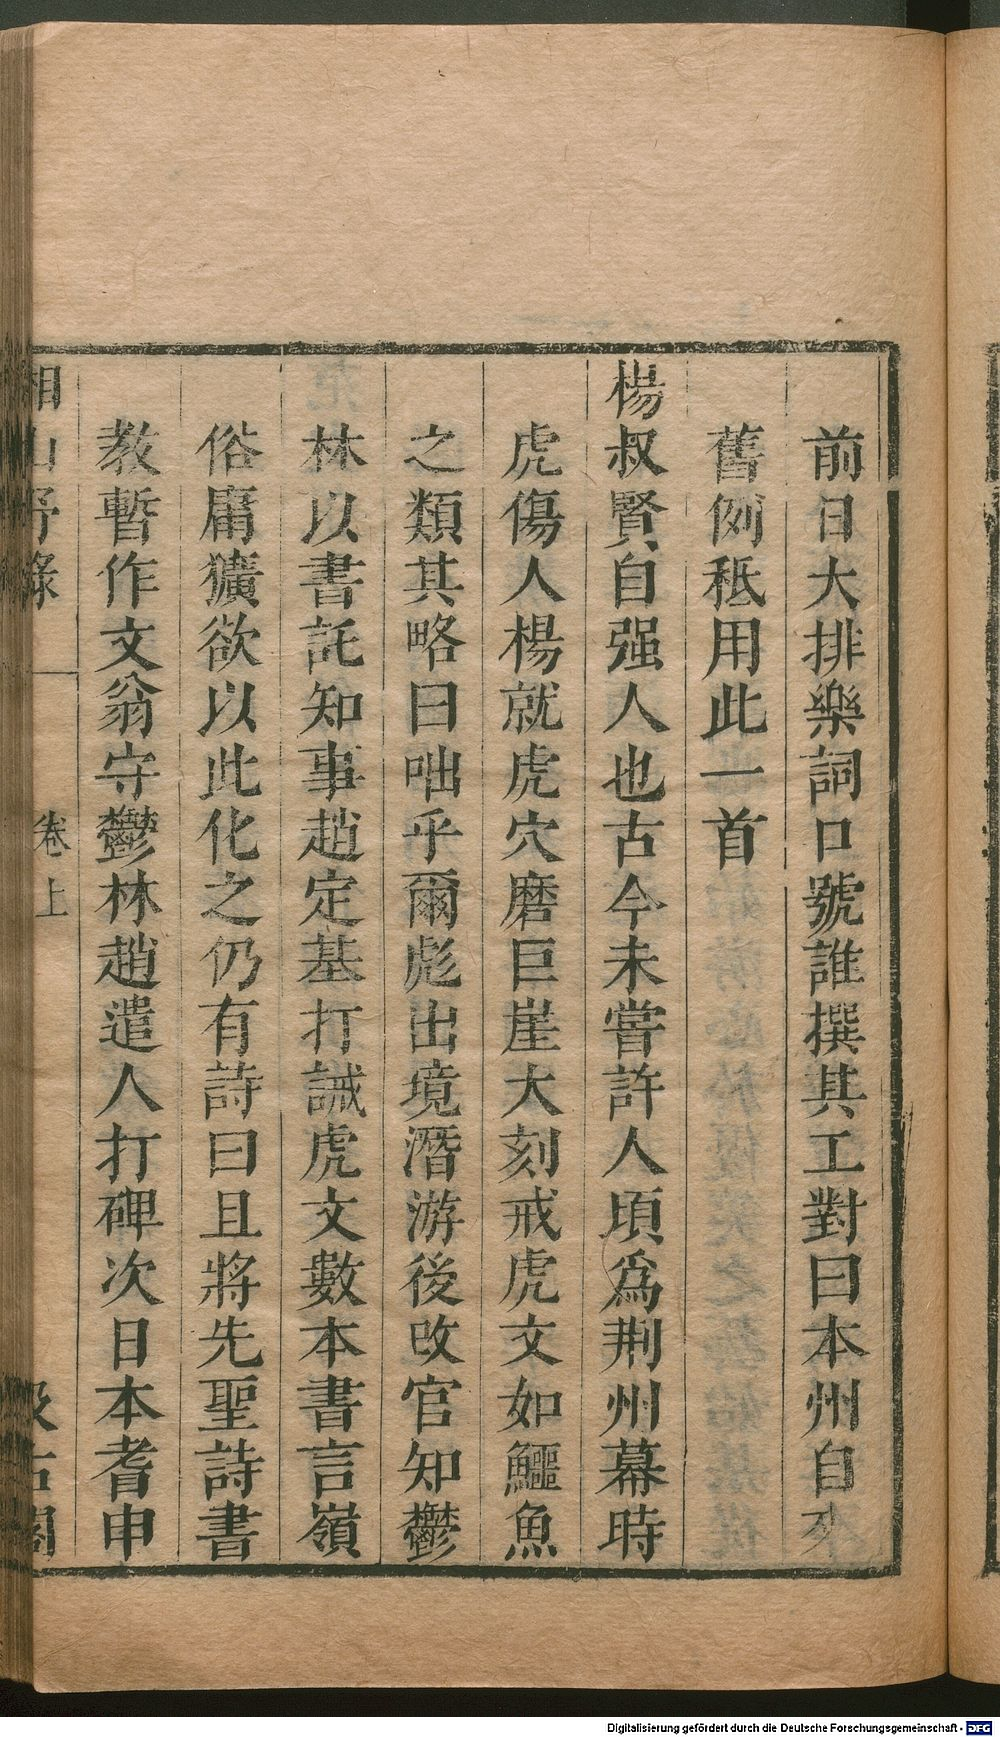 前日大排樂詞口號誰撰其工對曰本州自來
舊例秪用此一首
楊叔賢自强人也古今未嘗許人頃爲荆州幕時
虎傷人楊就虎穴磨巨崖大刻戒虎文如鱷魚
之類其略曰咄乎爾彪出境潛游後改官知鬱
林以書託知事趙定基打誡虎文數本書言嶺
俗庸獷欲以此化之仍有詩曰且將先聖詩書
教暫作文翁守鬱林趙遣人打碑次日本耆申
相山野錄 卷上 汲古閣
Digitalisierung gefördert durch die Deutsche Forschungsgemeinschaft - DFG